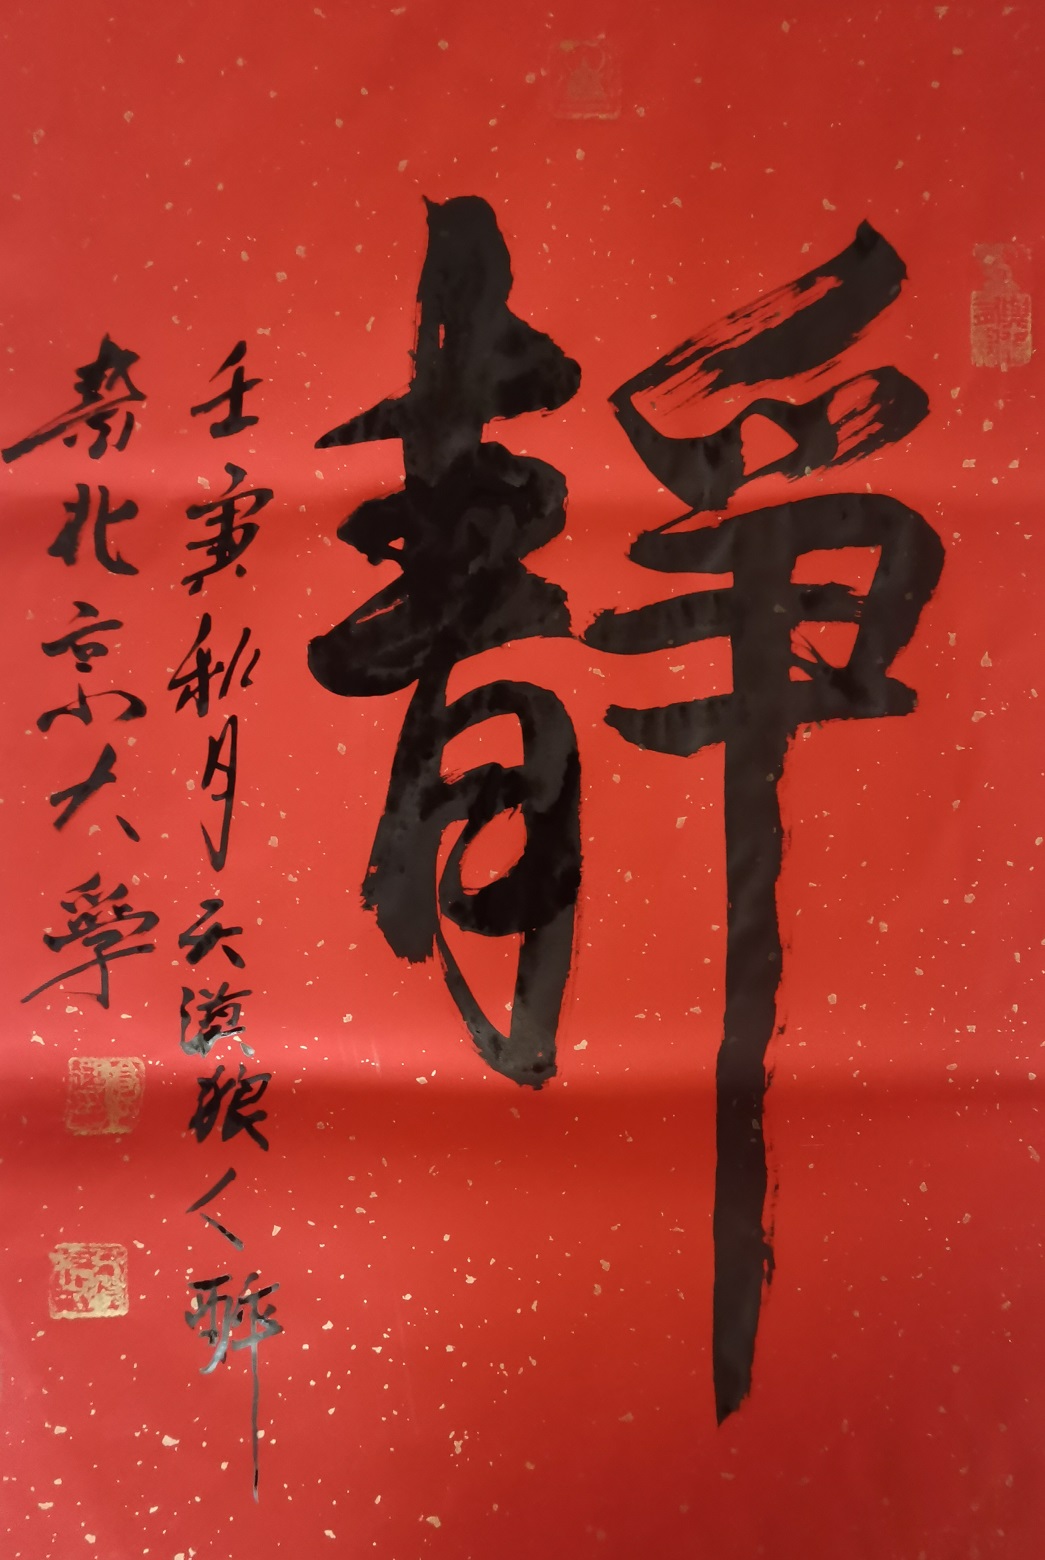 靜
壬寅秋月天漠狼人醉
书北京大學